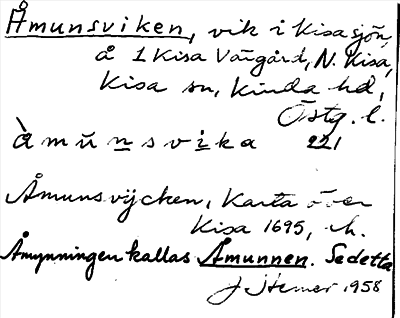 Åmunsviken, vik i Kisasjön,
å 1 Kisa Värgård, N. Kisa,
Kisa sn, Kinda hd,
Östg. l.
å̀ m ŭ n s v i k a 221
Åmunsvijcken, Karta över
Kisa 1695,
Åmynningen kallas Åmunnen. Se detta
1958